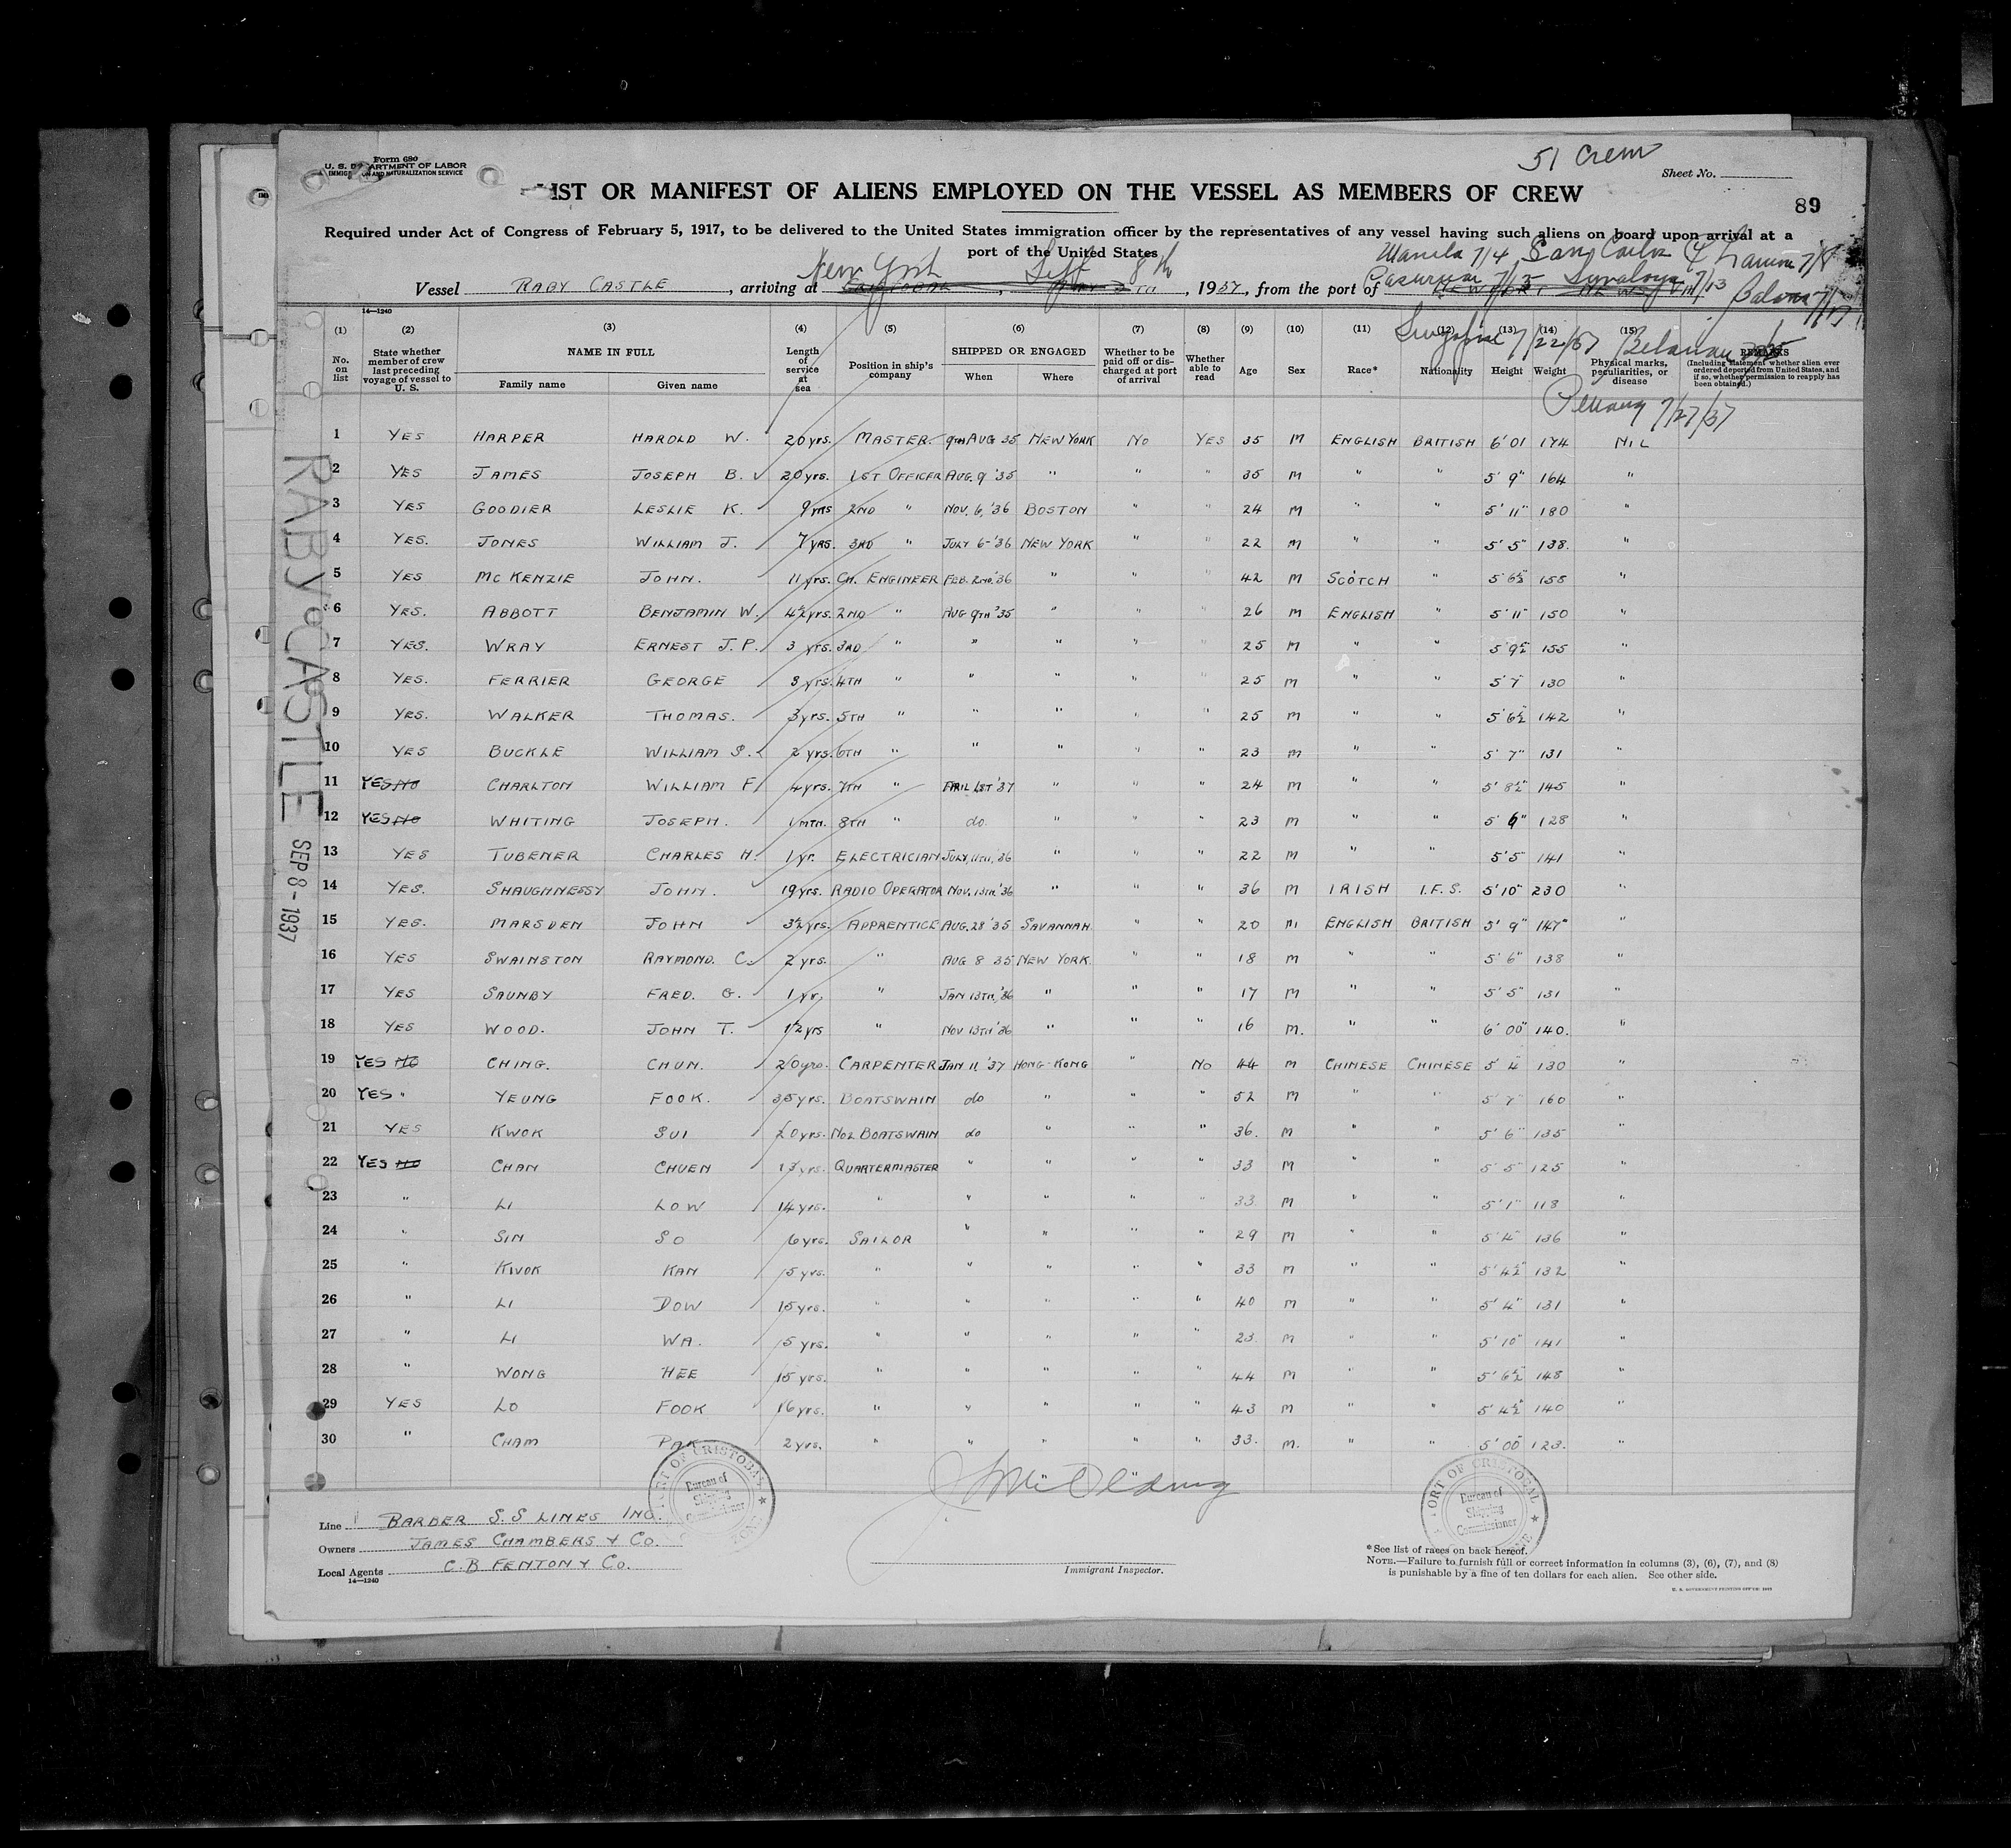 51 Crew
Form 680
U. S. DEPARTMENT OF LABOR
IMMIGRATION AND NATURALIZATION SERVICE
Sheet No.
LIST OR MANIFEST OF ALIENS EMPLOYED ON THE VESSEL AS MEMBERS OF CREW
89
Required under Act of Congress of February 5, 1917, to be delivered to the United States immigration officer by the representatives of any vessel having such aliens on board upon arrival at a
port of the United States
Manila 7/4 San Carlos
New York Sept 8th
Vessel RABY CASTLE, arriving at CRISTOBAL, 1937, from the port of
7/13
Singapore 7/22/37 Belawan
Penang 7/27/37
14—1240
(1) (2) (3) (4) (5) (6) (7) (8) (9) (10) (11) (12) (13) (14) (15)
No. on list
State whether member of crew last preceding voyage of vessel to U. S.
NAME IN FULL
Family name Given name
Length of service at sea
Position in ship's company
SHIPPED OR ENGAGED
When Where
Whether to be paid off or discharged at port of arrival
Whether able to read
Age Sex Race* Nationality Height Weight
Physical marks, peculiarities, or disease
REMARKS
(Including statement whether alien ever ordered deported from United States, and if so, whether permission to reapply has been obtained.)
1 YES HARPER HAROLD W. 20 yrs. MASTER 9TH AUG 35 NEW YORK No YES 35 M ENGLISH BRITISH 6'01 174 NIL
2 YES JAMES JOSEPH B. 20 yrs. 1ST OFFICER AUG. 9 '35 " " " 35 M " " 5' 9" 164 "
3 YES GOODIER LESLIE K. 9 yrs 2ND " NOV. 6, '36 BOSTON " " 24 M " " 5' 11" 180 "
4 YES. JONES WILLIAM J. 7 yrs. 3RD " JULY 6-'36 NEW YORK " " 22 M " " 5' 5" 138. "
5 YES MC KENZIE JOHN. 11 yrs. CH. ENGINEER FEB. 2ND. '36 " " " 42 M SCOTCH " 5' 6½" 158 "
6 YES. ABBOTT BENJAMIN W. 4½ yrs. 2ND " AUG 9TH '35 " " " 26 M ENGLISH " 5' 11" 150 "
7 YES. WRAY ERNEST J. P. 3 yrs. 3RD " " " " " 25 M " " 5' 9½ 155 "
8 YES. FERRIER GEORGE 3 yrs. 4TH " " " " " 25 M " " 5' 7" 130 "
9 YES. WALKER THOMAS. 3 yrs. 5TH " " " " " 25 M " " 5' 6½ 142 "
10 YES BUCKLE WILLIAM S. 2 yrs. 6TH " " " " " 23 M " " 5' 7" 131 "
11 YES NO CHARLTON WILLIAM F. 4 yrs. 7TH " APRIL 1ST '37 " " " 24 M " " 5' 8½" 145 "
12 YES NO WHITING JOSEPH. 1 MTH. 8TH " do. " " " 23 M " " 5' 6" 128 "
13 YES TUBENER CHARLES H. 1 yr. ELECTRICIAN JULY, 11TH, '36 " " " 22 M " " 5' 5" 141 "
14 YES. SHAUGHNESSY JOHN. 19 yrs. RADIO OPERATOR NOV. 13TH '36 " " " 36 M IRISH I.F.S. 5'10" 230 "
15 YES. MARSDEN JOHN 3½ yrs. APPRENTICE AUG. 28 '35 SAVANNAH. " " 20 M ENGLISH BRITISH 5' 9" 147" "
16 YES SWAINSTON RAYMOND. C. 2 yrs. " AUG 8 35 NEW YORK. " " 18 M " " 5' 6" 138 "
17 YES SAUNBY FRED. G. 1 yr. " JAN 13TH, '36 " " " 17 M " " 5' 5" 131 "
18 YES WOOD. JOHN T. 1½ yrs " NOV 13TH '36 " " " 16 M. " " 6' 00" 140. "
19 YES NO CHING. CHUN. 20 yrs. CARPENTER JAN 11 '37 HONG-KONG " No 44 M CHINESE CHINESE 5' 4" 130 "
20 YES " YEUNG FOOK. 35 yrs. BOATSWAIN do " " " 52 M " " 5' 7" 160 "
21 YES KWOK SUI 20 yrs. No2 BOATSWAIN do " " " 36. M " " 5' 6" 135 "
22 YES NO CHAN CHUEN 13 yrs. QUARTERMASTER " " " " 33 M " " 5' 5" 125 "
23 " LI LOW 14 yrs. " " " " " 33 M " " 5' 1" 118 "
24 " SIN SO 6 yrs. SAILOR " " " " 29 M " " 5' 4" 136 "
25 " KWOK KAN 15 yrs. " " " " " 33 M " " 5' 4½" 132 "
26 " LI DOW 15 yrs. " " " " " 40 M " " 5' 4" 131 "
27 " LI WA. 5 yrs. " " " " " 23. M " " 5' 10" 141 "
28 " WONG HEE 15 yrs. " " " " " 44 M " " 5' 6½" 148 "
29 YES LO FOOK 16 yrs. " " " " " 43 M " " 5' 4½" 140 "
30 " CHAM PAK 2 yrs. " " " " " 33. M. " " 5' 00" 123. "
RABY CASTLE
SEP 8 - 1937
PORT OF CRISTOBAL
Bureau of
Shipping
Commissioner
PORT OF CRISTOBAL
Bureau of
Shipping
Commissioner
Line BARBER S.S LINES INC.
Owners JAMES CHAMBERS & Co.
Local Agents C.B FENTON & Co.
14—1240
Immigrant Inspector.
*See list of races on back hereof.
NOTE.—Failure to furnish full or correct information in columns (3), (6), (7), and (8)
is punishable by a fine of ten dollars for each alien. See other side.